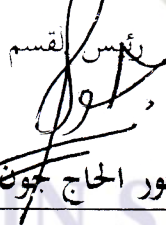 رئيس القسم
ور الحاج جون